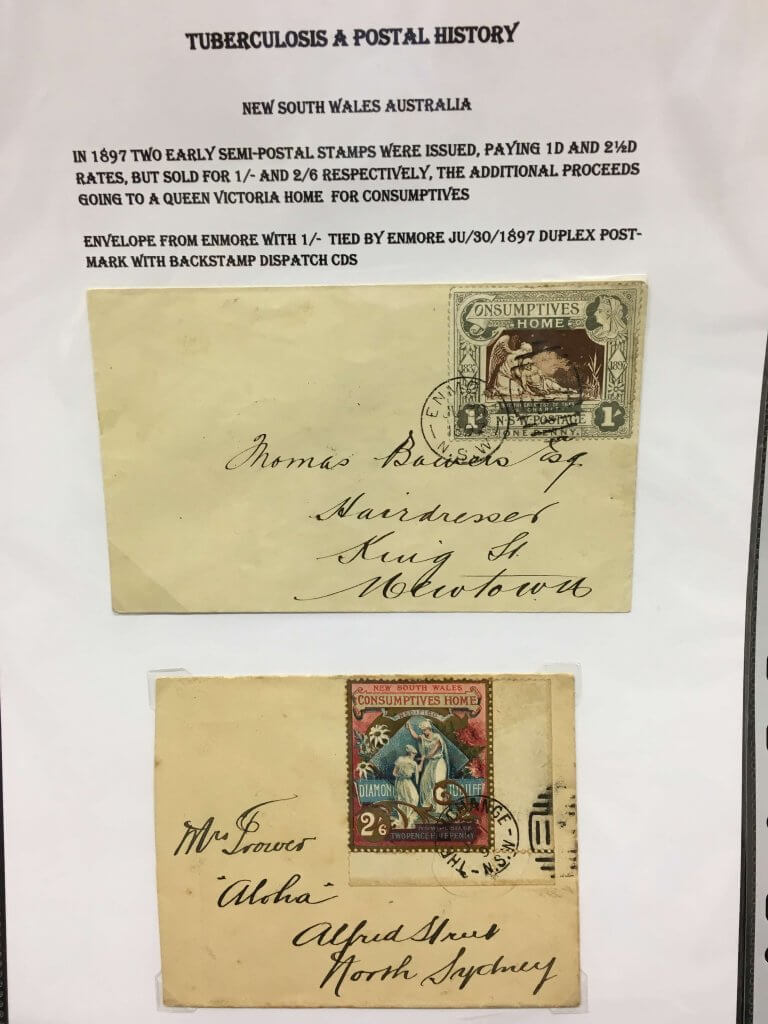 TUBERCULOSIS A POSTAL HISTORY
NEW SOUTH WALES AUSTRALIA
IN 1897 TWO EARLY SEMI-POSTAL STAMPS WERE ISSUED, PAYING 1D AND 2½D
RATES, BUT SOLD FOR 1/- AND 2/6 RESPECTIVELY, THE ADDITIONAL PROCEEDS
GOING TO A QUEEN VICTORIA HOME FOR CONSUMPTIVES
ENVELOPE FROM ENMORE WITH 1/- TIED BY ENMORE JU/30/1897 DUPLEX POST-
MARK WITH BACKSTAMP DISPATCH CDS
CONSUMPTIVES
HOME
1/- 1/-
N.S.W. POSTAGE
ONE PENNY
N.S.W
Thomas Bowers Esq
Hairdresser
King St
Newtown
NEW SOUTH WALES
CONSUMPTIVES HOME
DIAMOND JUBILEE
2/6
TWOPENCE HALFPENNY
EXCHANGE - N.S.W. - TH
Mrs Trower
"Aloha"
Alfred Street
North Sydney